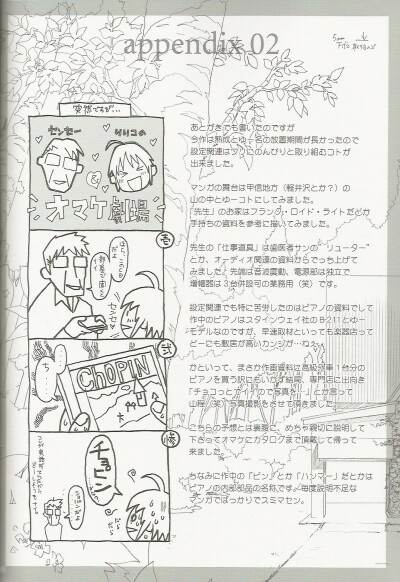 appendix 02
突然ですが…
センセー
リリコの
オマケ劇場
壱
弐
CHOPIN
チョピン
あとがきでも書いたのですが
今作は熟成とゆー名の放置期間が長かったので
設定関連はワリとのんびりと取り組むコトが
出来ました。
マンガの舞台は甲信地方（軽井沢とか？）の
山の中とゆーコトにしてみました。
「先生」のお家はフランク・ロイド・ライトだとか
手持ちの資料を参考に描いてみました。
先生の「仕事道具」は歯医者サンの"リューター"
とか、オーディオ関連の資料からでっち上げて
みました♪先端は音波震動、電源部は独立で
増幅器は３台併設可の業務用（笑）です。
設定関連でも特に苦労したのはピアノの資料でして
作中のピアノはスタインウェイ社のB-211とゆー
モデルなのですが、早速取材といっても楽器店って
どーにも敷居が高いカンジが…ねぇ
かといって、まさか作画資料に高級外車１台分の
ピアノを買う訳にもいかず結局、専門店に出向き
「チョコっとダケいいので写真を…」とか言って
山程（笑）写真撮影をさせて頂きました。
こちらの予想とは裏腹に、めちゃ親切に説明して
下さってオマケにカタログまで頂戴して帰って
来ました。
ちなみに作中の「ピン」とか「ハンマー」だとかは
ピアノの内部部品の名称です。毎度説明不足な
マンガでばっかりでスミマセン。